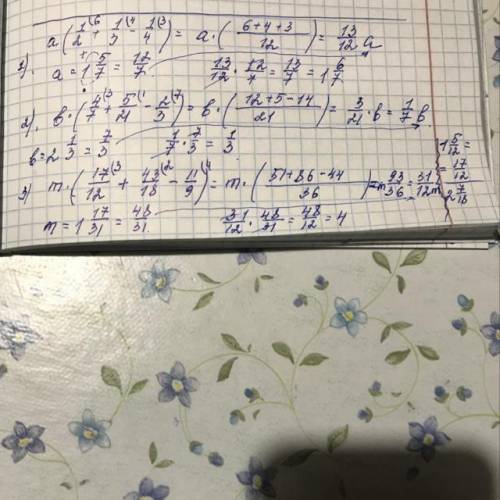 a(1/2⁽⁶ + 1/3⁽⁴ - 1/4⁽³) = a·((6+4+3)/12) = 13/12 a
1). a = 1 5/7 = 12/7   13/12 · 12/7 = 13/7 = 1 6/7
2) b·(4/7⁽³ + 5/21⁽¹ - 2/3⁽⁷) = b·((12+5-14)/21) = 3/21·b = 1/7 b.
b = 2 1/3 = 7/3   1/7 · 7/3 = 1/3.
3) m·(17/12⁽³ + 43/18⁽² - 11/9⁽⁴) = m·((51+86-44)/36) = m 93/36 = 31/12 m
m = 1 17/31 = 48/31.   31/12 · 48/31 = 48/12 = 4
1 5/12 =
= 17/12
2 7/18